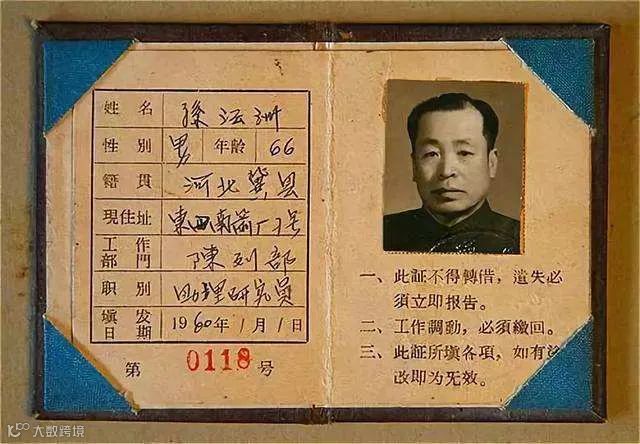 姓名 孫㳒洲
性别 男 年龄 66
籍貫 河北冀县
現住址 東四南箭厂3号
工作部門 陳列部
职别 助理研究員
填发日期 1960年1月1日
第 0118 号
一、此証不得轉借，遺失必
須立即报告。
二、工作調動，必須繳回。
三、此証所填各項，如有塗
改即为无效。
大数跨境